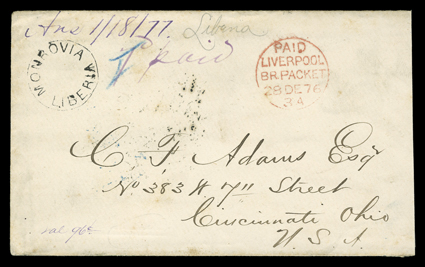 Ans 1/18/77. Liberia
paid
MONROVIA
LIBERIA
PAID
LIVERPOOL
BR. PACKET
28 DE 76
3A
C. F. Adams Esqr
No 383 W 7th Street
Cincinnati Ohio
U. S. A.